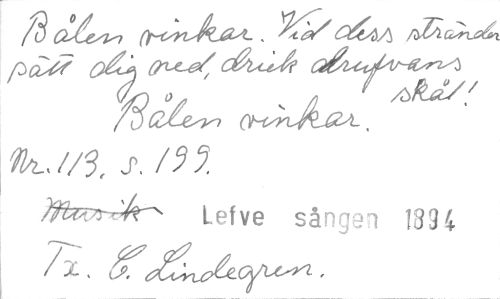 Bålen vinkar. Vid dess stränder
sätt dig ned, drick drufvans
skål!
Bålen vinkar.
Nr. 113, s. 199.
Musik Lefve sången 1894
Tx. C. Lindegren.